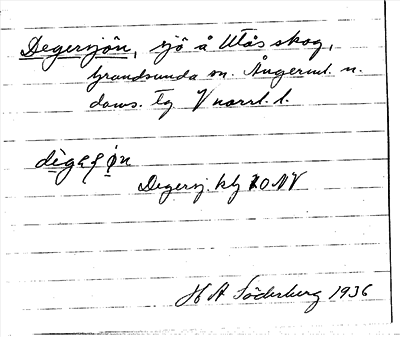 Degersjön, sjö å Utås skog,
Grundsunda sn. Ångerml. n.
doms. tg V norrl. l.
dègaʃø̀n
Degersj. blj NO NV
H A Söderberg 1936